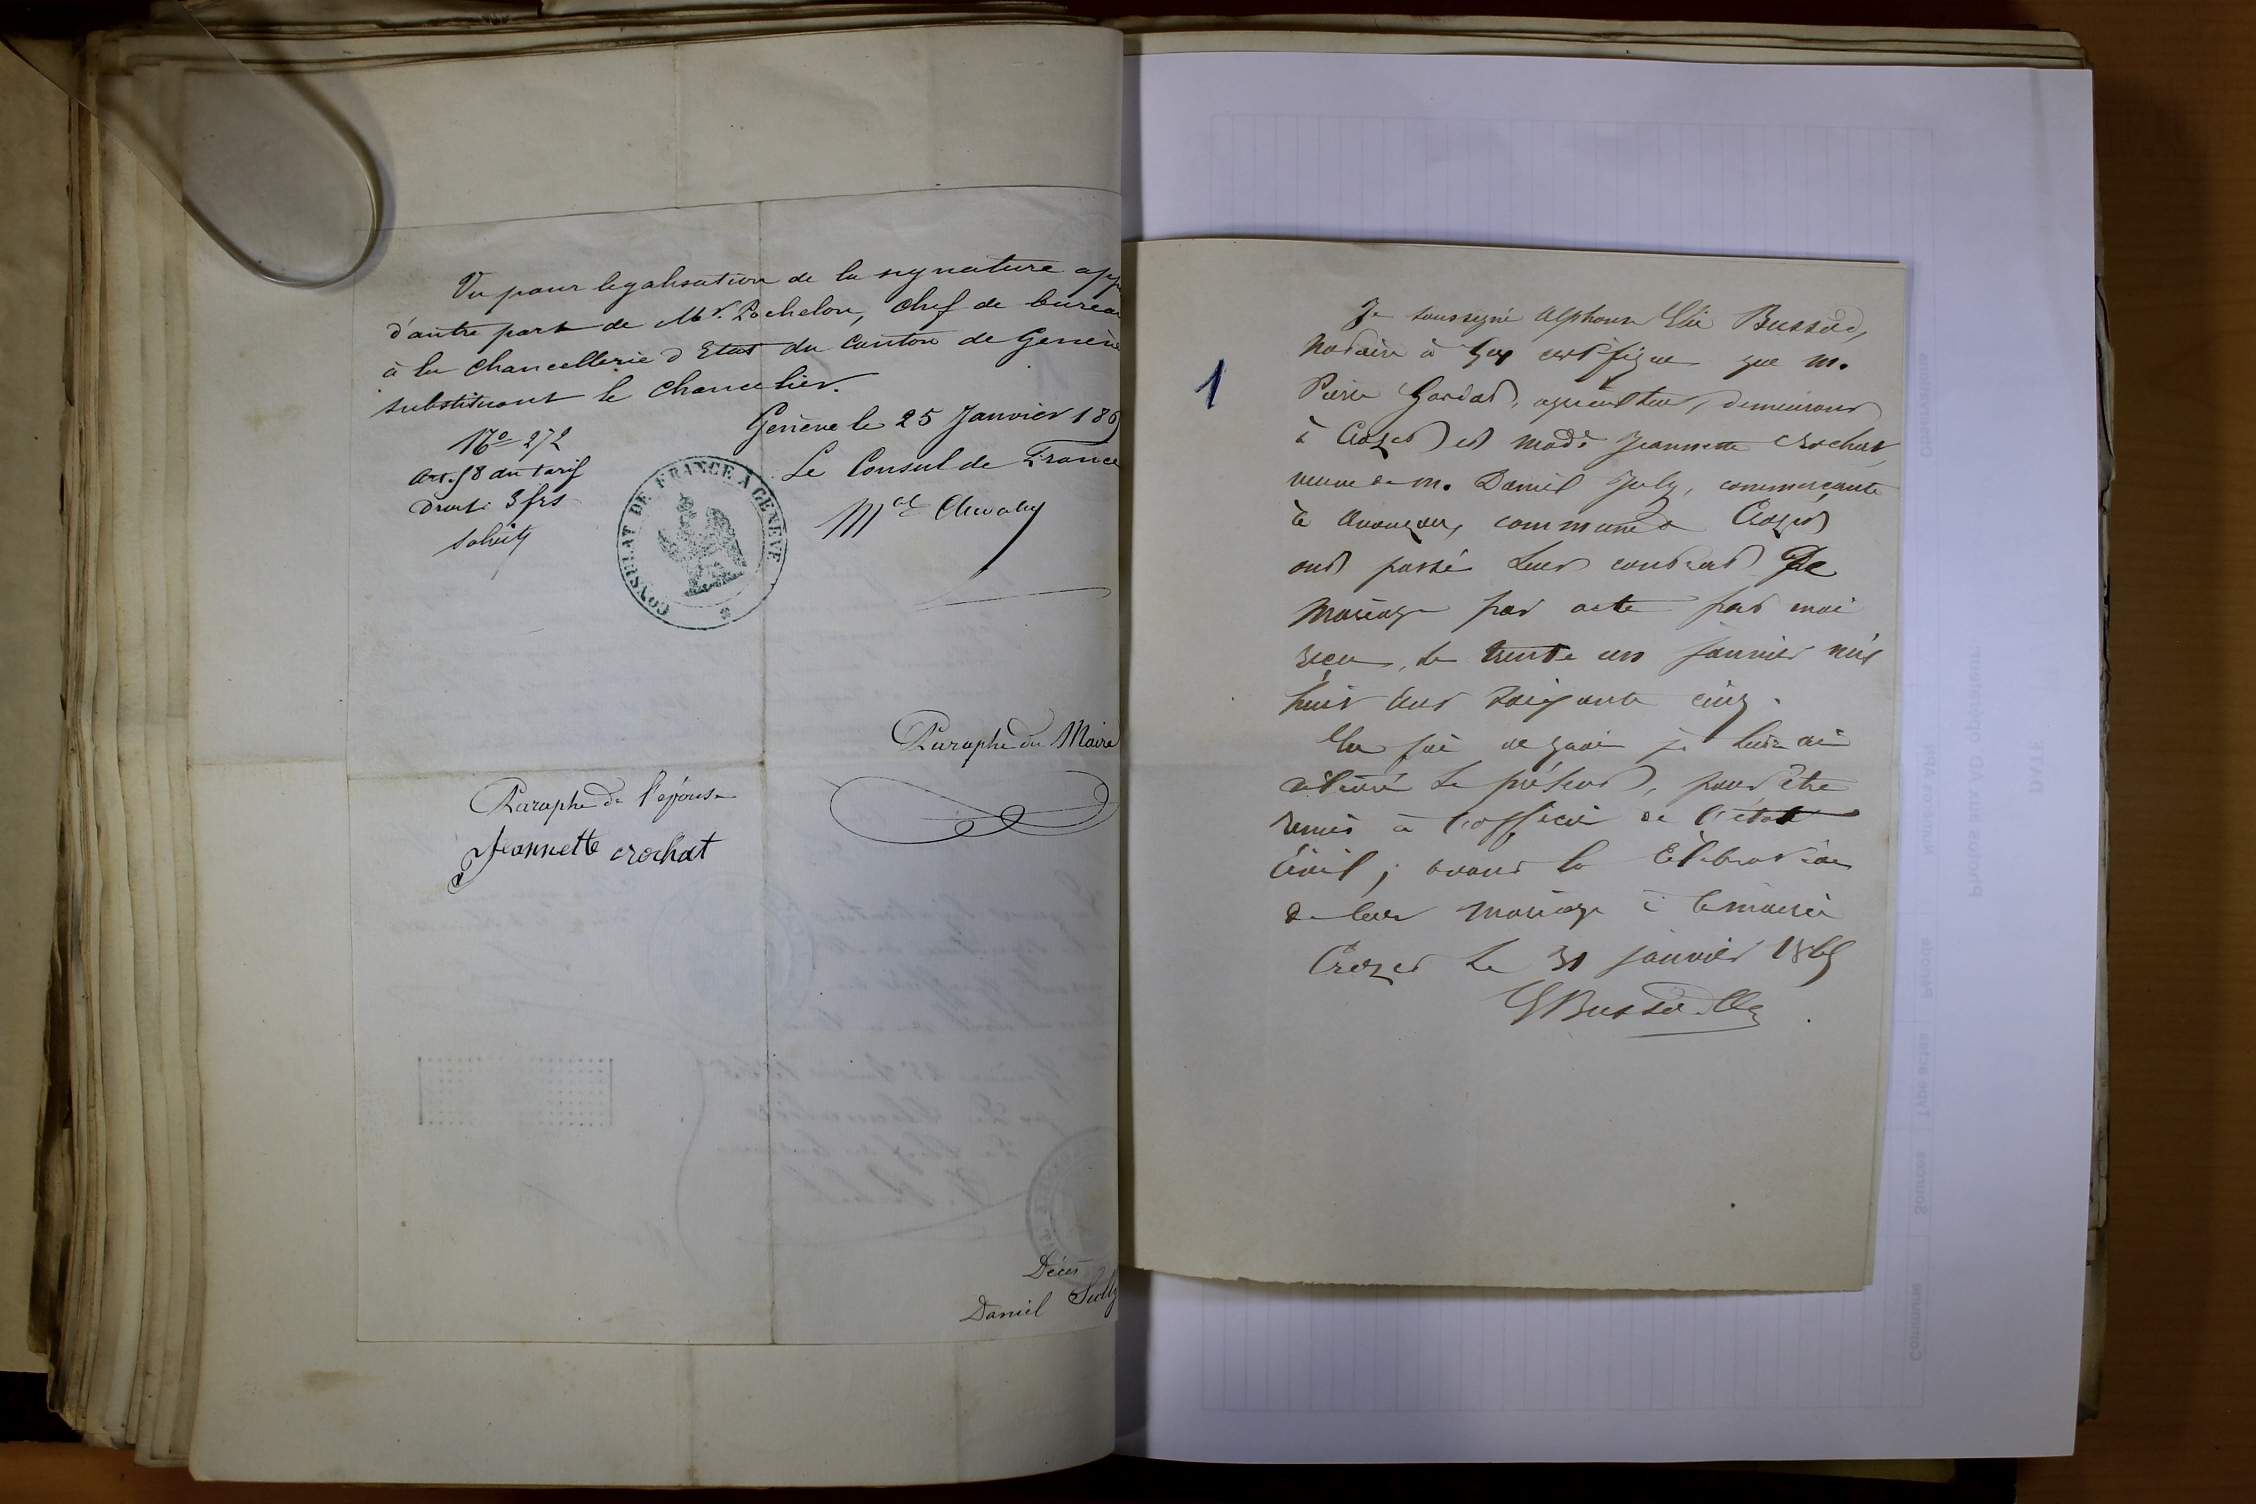 Vu pour legalisation de la signature app
d'autre part de Mr. Rochelon, Chef de burea
à la Chancellerie d'Etat du Canton de Genève
substituant le Chancelier.
Genève le 25 Janvier 186
Le Consul de France
No 272
Art. 58 du tarif
Droits 3 frs
CONSULAT DE FRANCE A GENEVE
Paraphe du Maire
Paraphe de l'épouse
Jeannette crochat
Décès
Daniel Jully
1
Je soussigné Alphonse Elie Bussod,
Notaire à Gex certifie que M.
Pierre Gardat, agriculteur, demeurant
à Crozet et Made Jeannette Crochat,
veuve de M. Daniel July, commerçante
à Avouzon, commune de Crozet
ont passé leur contrat De
Mariage par acte par moi
reçu, le trente un janvier mil
huit cent soixante cinq.
En foi de quoi je leur ai
délivré le présent, pour être
remis à l'officier de l'état
Civil, avant la Célébration
de leur mariage à la mairie
Crozet le 31 janvier 1865